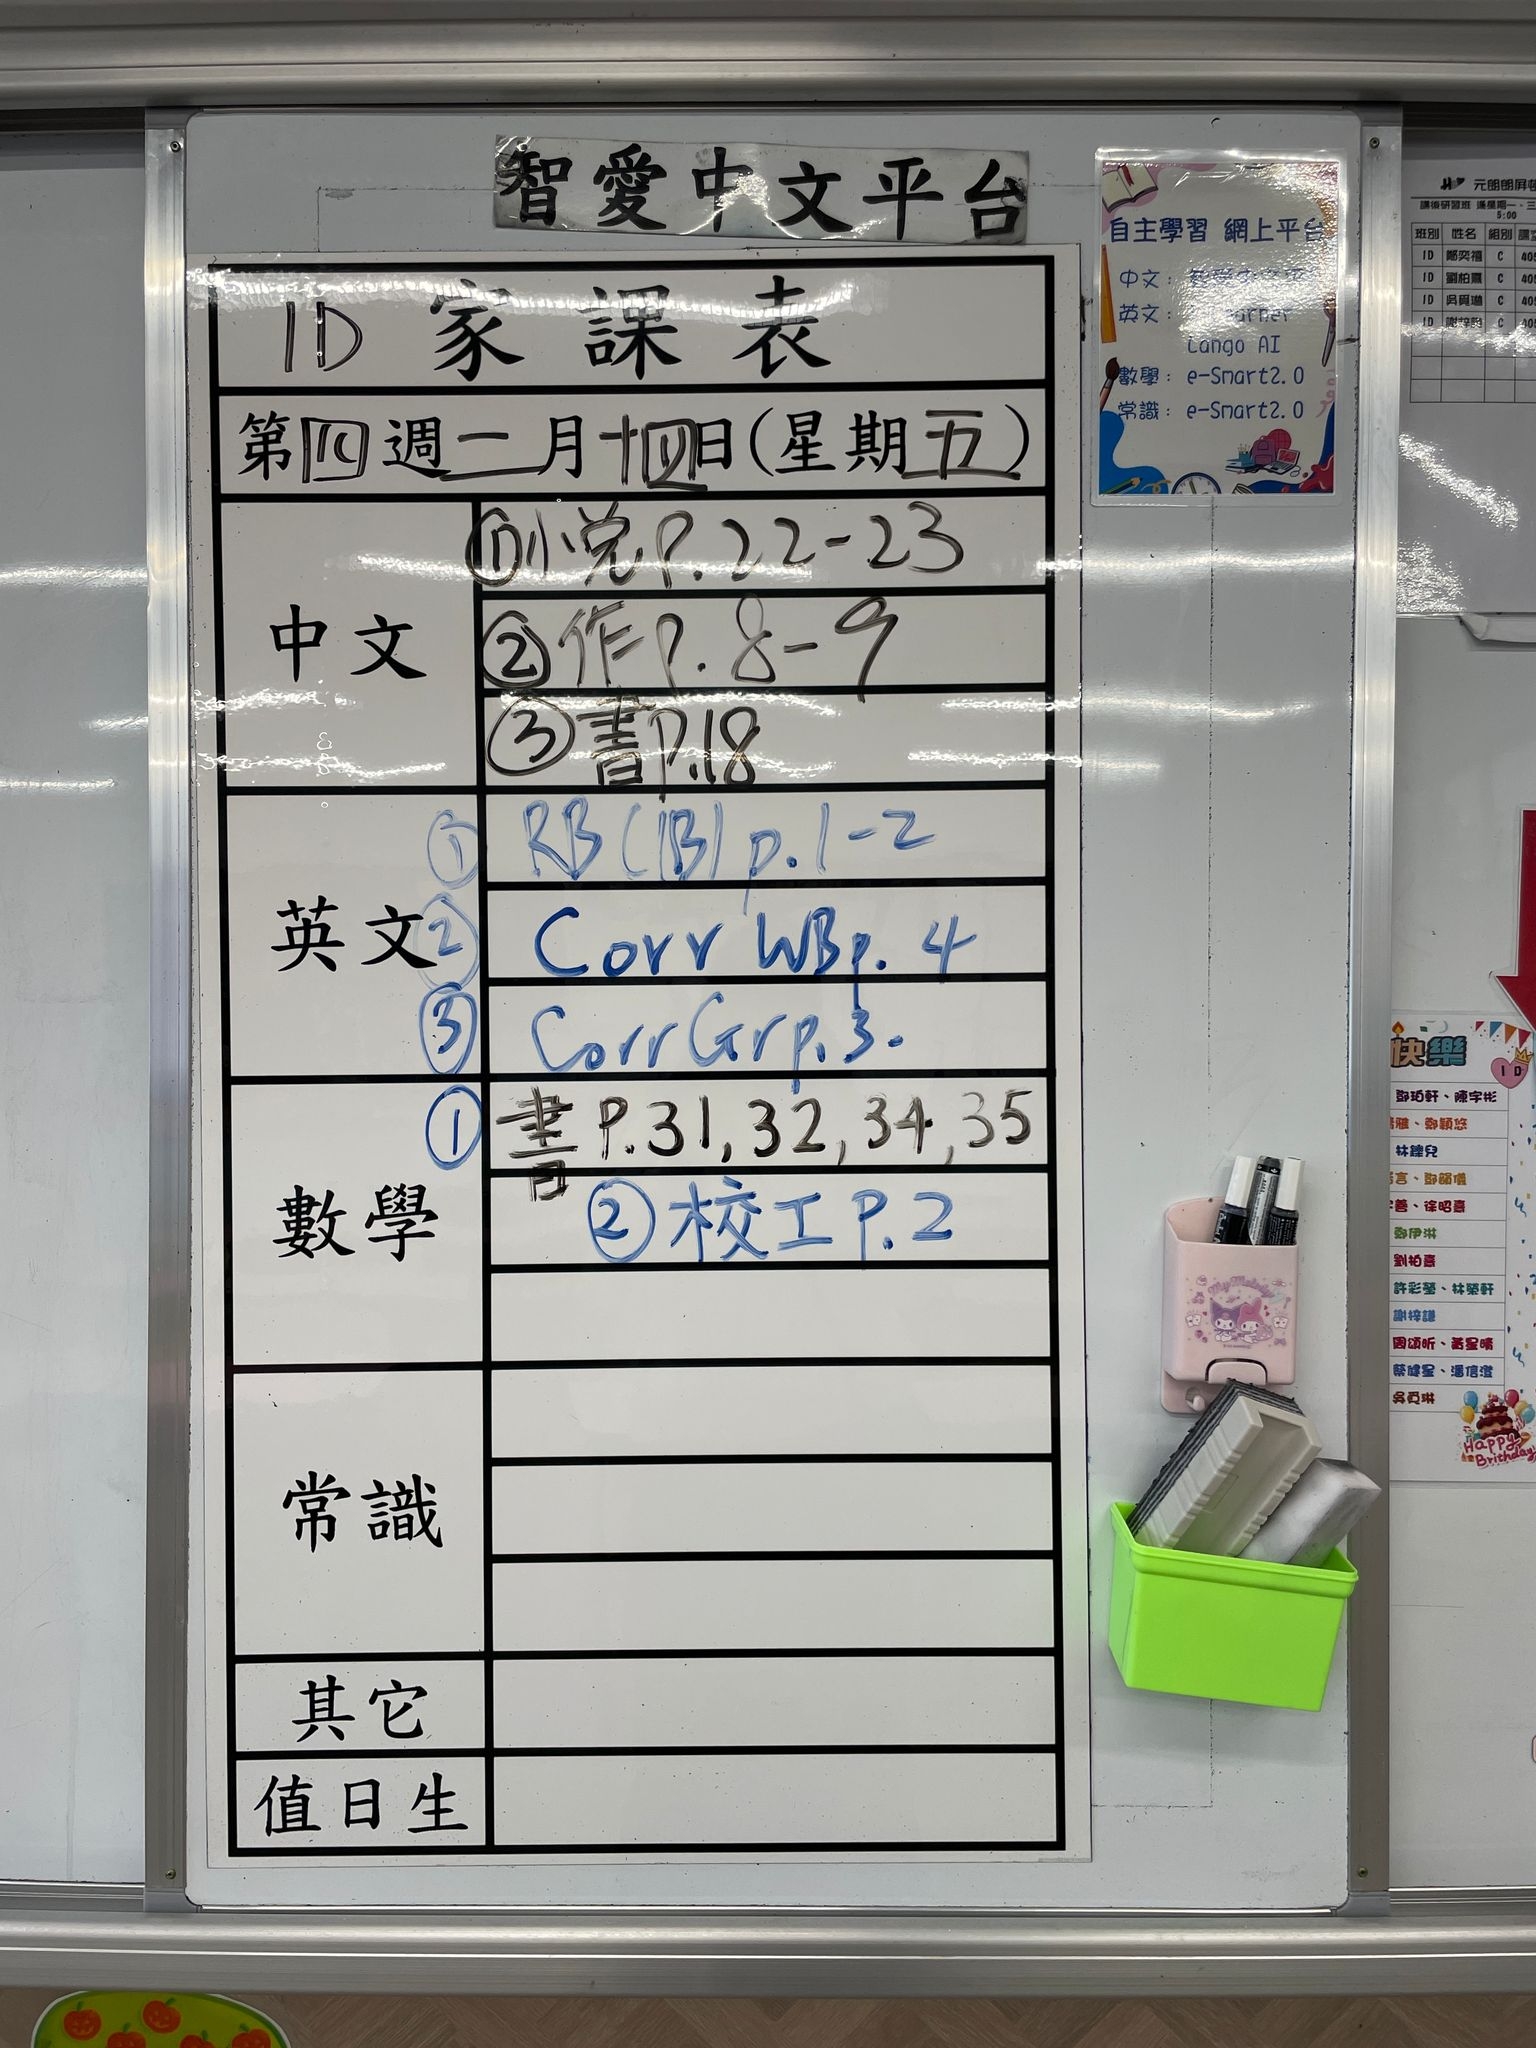 智愛中文平台
1D 家課表
第四週 二月十四日(星期五)
中文
①小說P.22-23
②作P.8-9
③書P.18
英文
① RB (1B) p.1-2
② Corr WB p.4
③ Corr Gr p.3.
數學
① 書 P.31, 32, 34, 35
② 校工 P.2
常識
其它
值日生
自主學習 網上平台
中文:
英文:
Lango AI
數學: e-Smart2.0
常識: e-Smart2.0
元朗朗屏
課後研習班 逢星期一 - 三
5:00
班別 姓名 組別
1D C 405
1D 劉柏熹 C 405
1D C 405
1D C 405
快樂
1D
鄧珀軒、陳宇彬
雅、鄭穎悠
言、
善、徐昭熹
鄭伊淇
劉柏熹
許彩瑩、林榮軒
謝梓謙
周頌昕、黃星晴
蔡健星、潘信澄
My Melody
Happy
Brithday